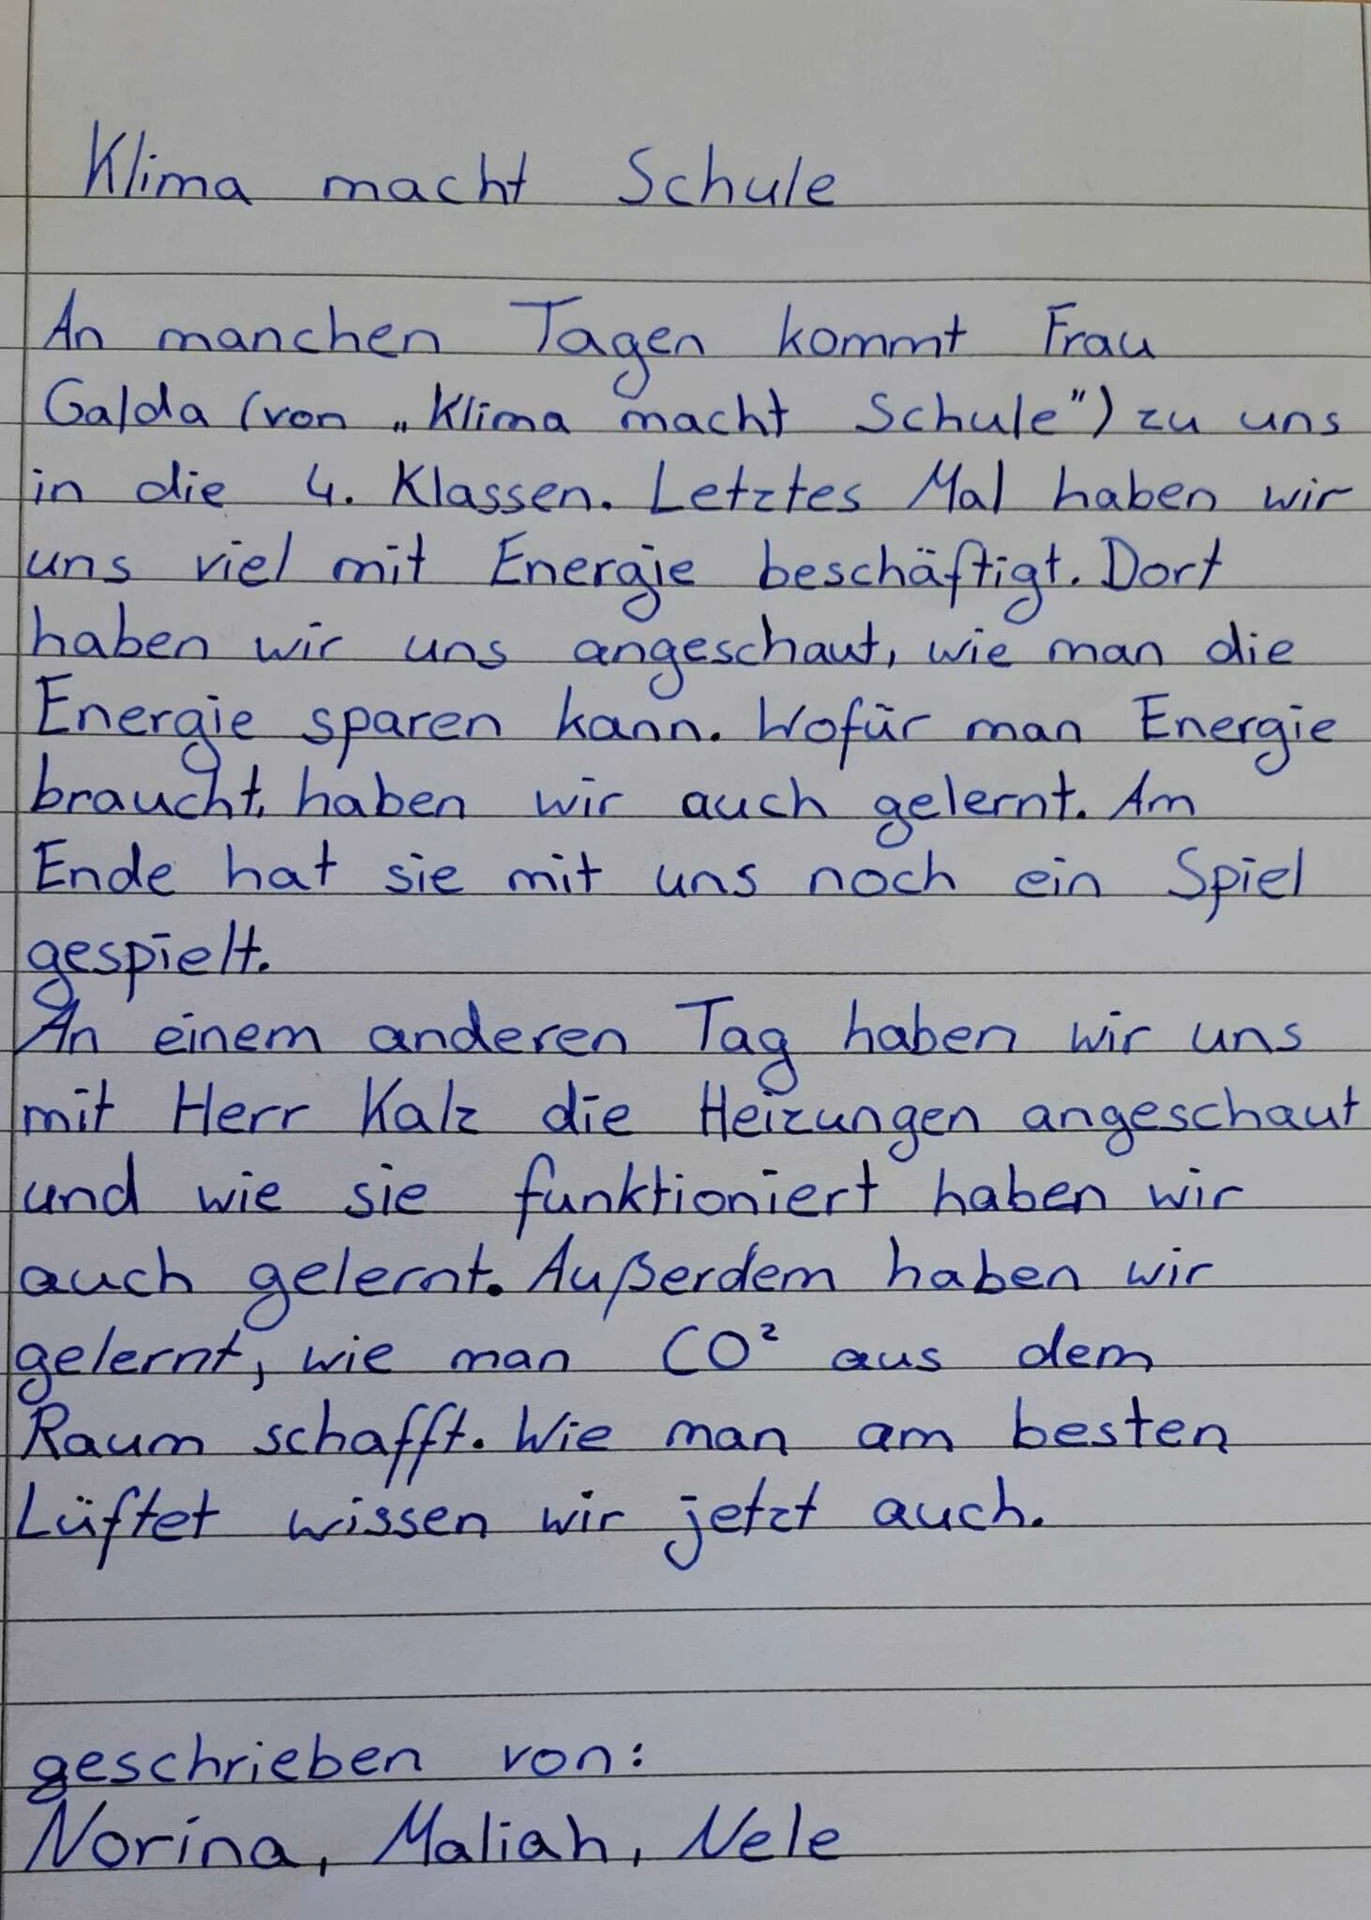 Klima macht Schule
An manchen Tagen kommt Frau
Galda (von „Klima macht Schule") zu uns
in die 4. Klassen. Letztes Mal haben wir
uns viel mit Energie beschäftigt. Dort
haben wir uns angeschaut, wie man die
Energie sparen kann. Wofür man Energie
braucht, haben wir auch gelernt. Am
Ende hat sie mit uns noch ein Spiel
gespielt.
An einem anderen Tag haben wir uns
mit Herr Kalz die Heizungen angeschaut
und wie sie funktioniert haben wir
auch gelernt. Außerdem haben wir
gelernt, wie man CO² aus dem
Raum schafft. Wie man am besten
Lüftet wissen wir jetzt auch.
geschrieben von:
Norina, Maliah, Nele